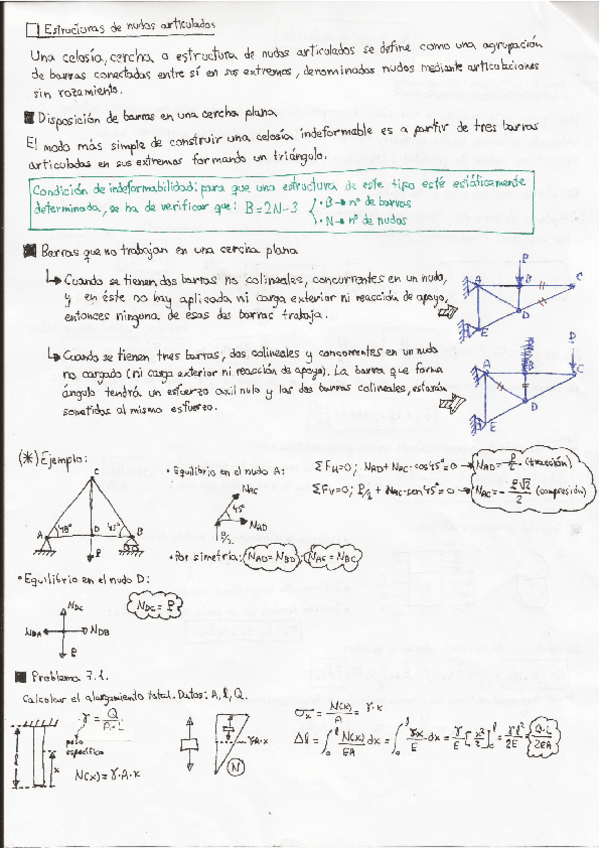 Estructuras de nudos articulados
Una celosía, cercha o estructura de nudos articulados se define como una agrupación
de barras conectadas entre sí en sus extremos, denominados nudos mediante articulaciones
sin rozamiento.
Disposición de barras en una cercha plana
El modo más simple de construir una celosía indeformable es a partir de tres barras
articuladas en sus extremos formando un triángulo.
Condición de indeformabilidad: para que una estructura de este tipo esté estáticamente
determinada, se ha de verificar que: B=2N-3 { · B → nº de barras
· N → nº de nudos
Barras que no trabajan en una cercha plana
↳ Cuando se tienen dos barras no colineales, concurrentes en un nudo,
y en éste no hay aplicada ni carga exterior ni reacción de apoyo,
entonces ninguna de esas dos barras trabaja.
P
A B C
D
E
↳ Cuando se tienen tres barras, dos colineales y concorrentes en un nudo
no cargado (ni carga exterior ni reacción de apoyo). La barra que forma
ángulo tendrá un esfuerzo axil nulo y las dos barras colineales, estarán
sometidas al mismo esfuerzo.
A B C
D
E
(*) Ejemplo:
C
A 45° D 45° B
P
• Equilibrio en el nudo A:
NAC
45°
NAD
P/2
ΣFH=0; NAD+NAC·cos45°=0 → NAD=P/2 (tracción)
ΣFV=0; P/2+NAC·sen45°=0 → NAC=-P√2/2 (compresión)
• Por simetría: NAD=NBD; NAC=NBC
• Equilibrio en el nudo D:
NDC
NDA NDB
P
NDC=P
Problema 7.1.
Calcular el alargamiento total. Datos: A, l, Q.
γ=Q/A·L
peso
específico
l
x
N(x)=γ·A·x
γA·x
N
σx=N(x)/A=γ·x
Δl=∫₀ˡ N(x)/EA dx=∫₀ˡ γx/E·dx=γ/E[x²/2]₀ˡ=γl²/2E=Q·L/2EA